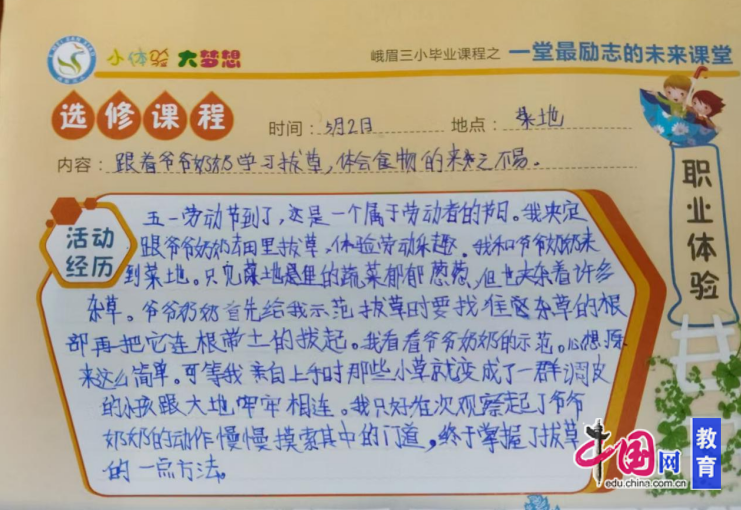 小体验 大梦想
峨眉三小毕业课程之 一堂最励志的未来课堂
选修课程
时间：5月2日 地点：菜地
内容：跟着爷爷奶奶学习拔草，体会食物的来之不易。
职业体验
活动经历
五一劳动节到了，这是一个属于劳动者的节日。我决定
跟爷爷奶奶去田里拔草，体验劳动乐趣。我和爷爷奶奶来
到菜地。只见菜地里的蔬菜郁郁葱葱，但也夹杂着许多
杂草。爷爷奶奶首先给我示范拔草时要找准杂草的根
部再把它连根带土的拔起。我看着爷爷奶奶的示范。心想原
来这么简单。可等我亲自上手时那些小草就变成了一群调皮
的小孩跟大地牢牢相连。我只好在次观察起了爷爷
奶奶的动作慢慢摸索其中的门道，终于掌握了拔草
的一点方法。
中国网 教育
edu.china.com.cn